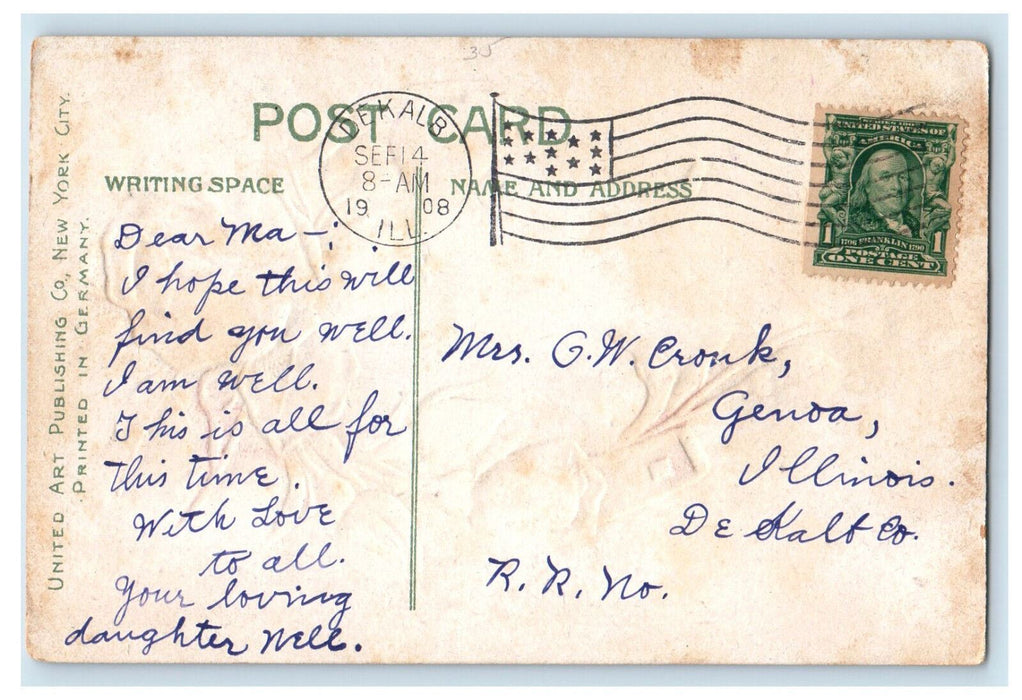 35
POST CARD
DEKALB
SEP 14
8-AM
1908
ILL.
WRITING SPACE
NAME AND ADDRESS
SERIES 1902
UNITED STATES OF
AMERICA
1 1706 FRANKLIN 1790 1
POSTAGE
ONE CENT
UNITED ART PUBLISHING CO., NEW YORK CITY.
PRINTED IN GERMANY.
Dear Ma-;
I hope this will
find you well.
I am well.
This is all for
this time.
With Love
to all.
Your loving
daughter Nell.
Mrs. G.W. Cronk,
Genoa,
Illinois.
De Kalb Co.
R. R. No.